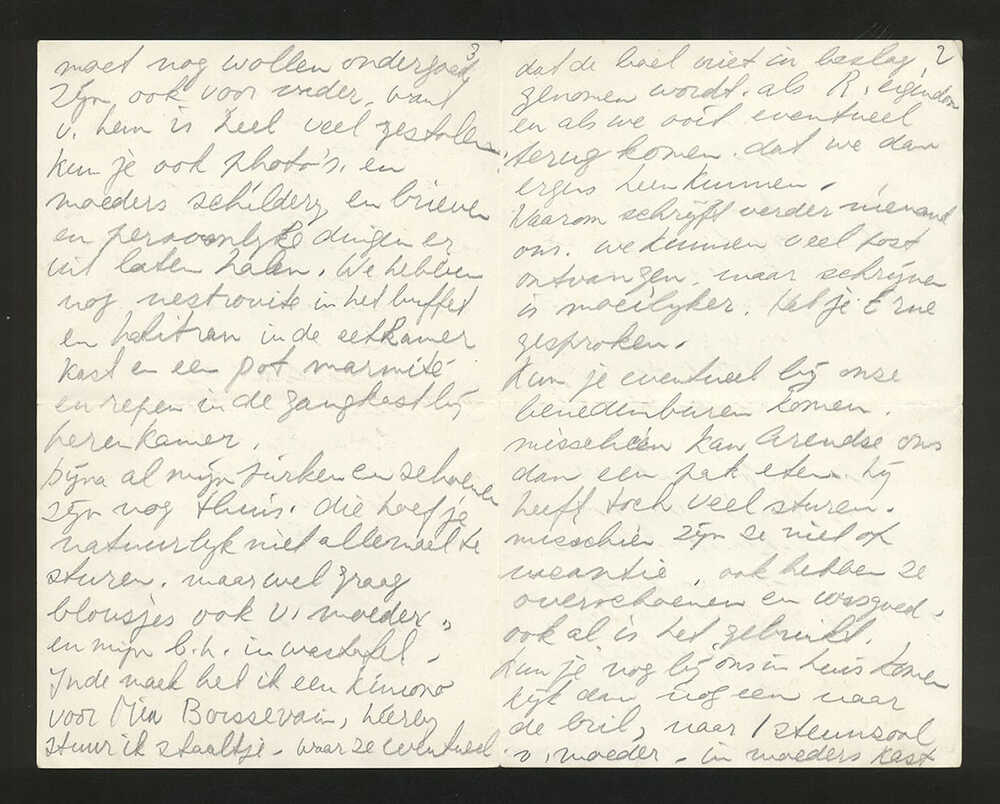 3
moet nog wollen ondergoed
zijn ook voor vader, want
v. hem is heel veel gestolen.
Kun je ook photo's, en
moeders schildery en brieven
en persoonlyke dingen er
uit laten halen. We hebben
nog nestrovite in het buffet
en halitran in de eetkamer
kast en een pot marmite
en repen in de gangkast bij
herenkamer.
Bijna al mijn jurken en schoenen
zijn nog thuis. die hoef je
natuurlyk niet allemaal te
sturen. maar wel graag
blousjes ook v. moeder,
en mijn b.h. in wastafel.
In de naak heb ik een kimono
voor Mia Boissevain, hierby
stuur ik staaltje - waar ze eventueel
2
dat de boel niet in beslag
genomen wordt. als R. eigendom
en als we ooit eventueel
terug komen. dat we dan
ergens heen kunnen.
Waarom schryft verder niemand
ons. we kunnen veel post
ontvangen, maar schrijven
is moeilyker. Heb je Erne
gesproken.
Kun je eventueel bij onze
benedenburen komen.
misschien kan Arendse ons
dan een pak eten. hij
heeft toch veel sturen.
misschien zijn ze niet op
vacantie, ook hebben ze
overschoenen en wasgoed.
ook al is het gebruikt.
Kun je nog bij ons in huis komen
kijk dan nog een naar
de bril, naar 1 steunzool
v. moeder - in moeders kast